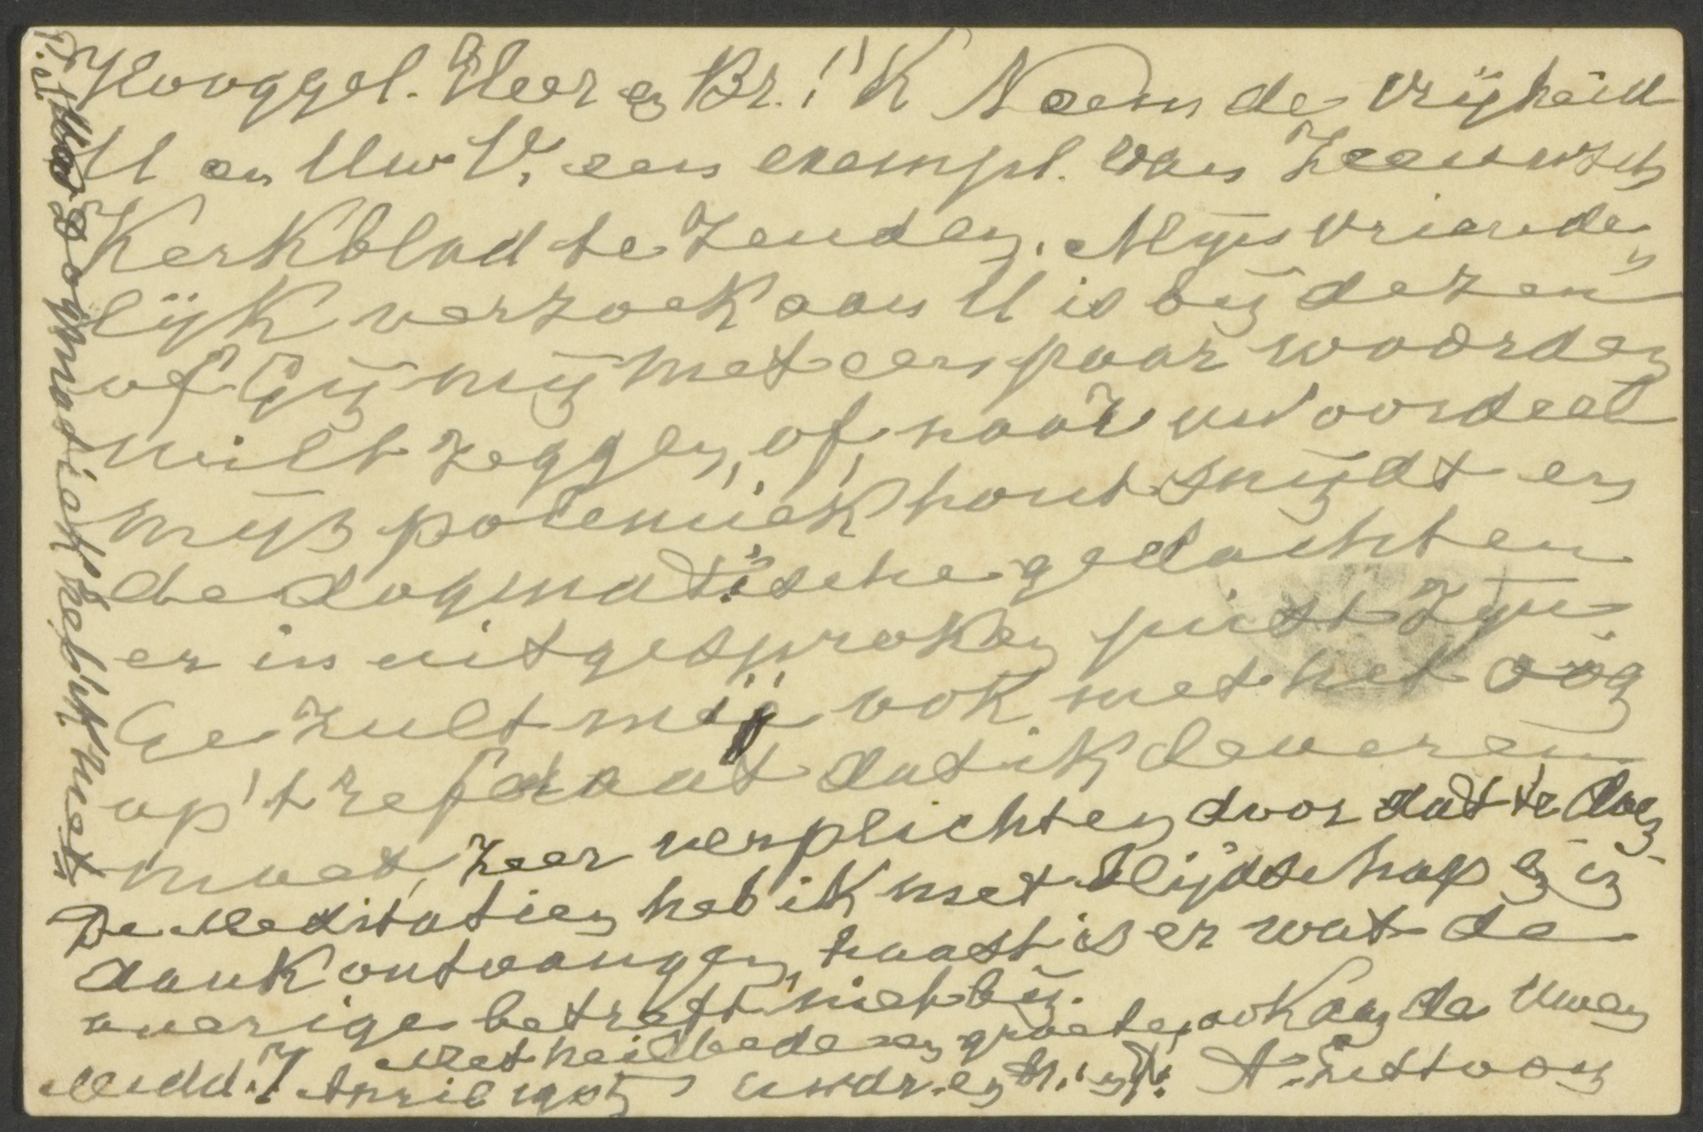 Hooggel. Heer en Br.! 'K Neem de vrijheid
U en Uw V. een exempl. van Zeeuwsch
Kerkblad te zenden. Mijn vriende
lijk verzoek aan U is bij dezen
of Gij mij met een paar woorden
wilt zeggen, of naar uw oordeel
mijn polemiek hout snijdt en
de dogmatische gedachten
er in uitgesproken juist zijn
Ge zult mij ook met het oog
op 't referaat dat ik leveren
moet, zeer verplichten door dat te doen
De Meditatien heb ik met blijdschap en in
dank ontvangen, haast is er wat de
overige betreft niet bij.
Met heilbede en groeten, ook aan de Uwen
Midd. 7 April 1905 Uw dr. en A. Littooij
P.S. Uw Dogmatiek heb ik niet